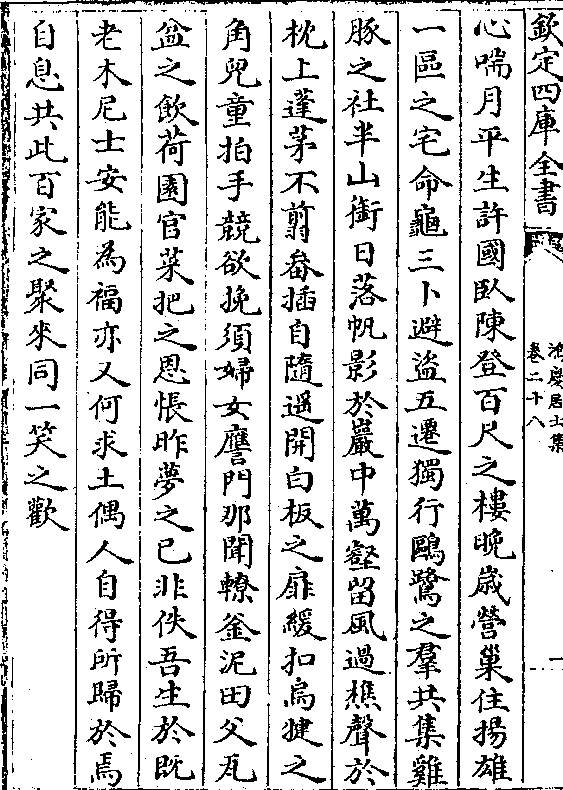 欽定四庫全書
鴻慶居士集
卷二十八
一
心喘月平生許國臥陳登百尺之樓晚歲營巢住揚雄
一區之宅命龜三卜避盜五遷獨行鷗鷺之羣共集雞
豚之社半山銜日落帆影於巖中萬壑留風過樵聲於
枕上蓬茅不翦畚插自隨遥開白板之扉緩扣烏犍之
角兒童拍手競欲挽須婦女譍門那聞轑釜泥田父瓦
盆之飲荷園官菜把之恩悵昨夢之已非佚吾生於既
老木尼士安能為福亦又何求土偶人自得所歸於焉
自息共此百家之聚來同一笑之歡